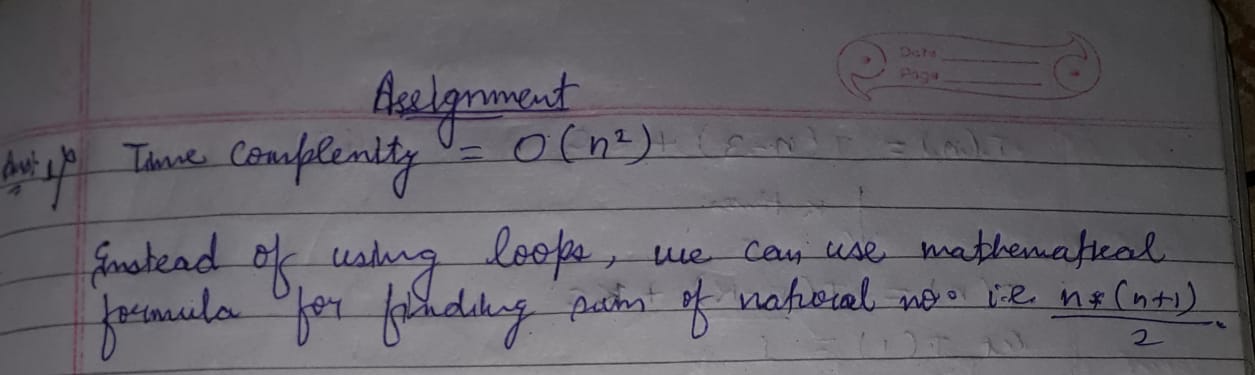 Date
Page
Assignment
Ans: 1)
Time Complexity = O(n²)
Instead of using loops, we can use mathematical
formula for finding sum of natural no. i.e. n*(n+1)/2.